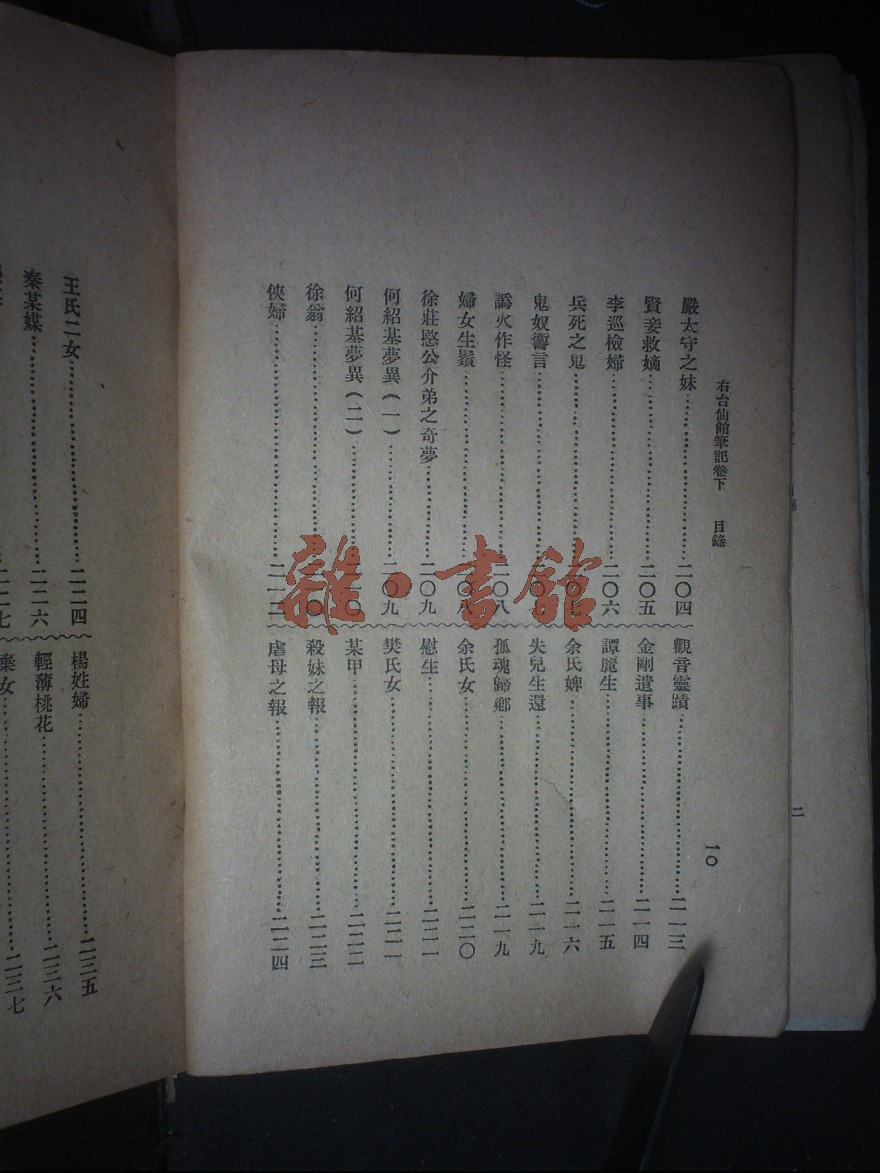 右台仙館筆記卷下　目錄
一〇
嚴太守之妹……二〇四
賢妾救嫡……二〇五
李巡檢婦……二〇六
兵死之鬼……二〇七
鬼奴讏言……二〇八
譌火作怪……二〇八
婦女生鬚……二〇八
徐莊愍公介弟之奇夢……二〇九
何紹基夢異(一)……二〇九
何紹基夢異(二)……二一〇
徐翁……
俠婦……二一二
觀音靈蹟……二一三
金剛遺事……二一四
譚麗生……二一五
余氏婢……二一六
失兒生還……二一九
孤魂歸鄉……二一九
余氏女……二二〇
慰生……二二一
樊氏女……二二一
某甲……二二二
殺妹之報……二二三
虐母之報……二二四
王氏二女……二二四
秦某媒……二二六
二二七
楊姓婦……二三五
輕薄桃花……二三六
棄女……二三七
二
雜·書館